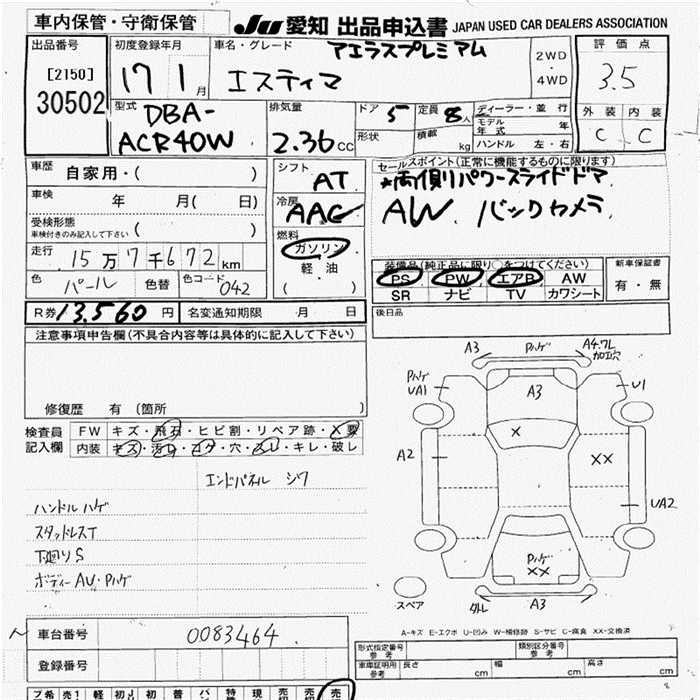 車内保管・守衛保管
JU 愛知 出品申込書 JAPAN USED CAR DEALERS ASSOCIATION
出品番号
[2150]
30502
初度登録年月
17 1月
車名・グレード
アエラスプレミアム
エスティマ
2WD
4WD
評価点
3.5
外装 内装
C C
型式
DBA-
ACR40W
排気量
2.36cc
ドア 5
形状
定員 8人
積載 kg
ディーラー・並行
モデル年式 年
ハンドル 左・右
車歴 自家用・( )
車検 年 月( 日)
受検形態 ・( )
車検付きのみ記入して下さい
走行 15万7千672km
色 パール 色替 色コード 042
シフト
AT
冷房
AAC
燃料
ガソリン
軽油
( )
セールスポイント(正常に機能するものに限ります)
*両側パワースライドドア
AW. バックカメラ
装備品(純正品に限り○をつけてください)
PS PW エアB AW
SR ナビ TV カワシート
新車保証書
有・無
R券 13,560円 名変通知期限 月 日
後日品
注意事項申告欄(不具合内容等は具体的に記入して下さい)
修復歴 有 (箇所 )
検査員
記入欄
FW キズ・飛石・ヒビ割・リペア跡・X要
内装 キズ・汚れ・コゲ・穴・スレ・キレ・破レ
エンドパネル シワ
ハンドルハゲ
スタッドレスT
下廻りS
ボディーAU・Pハゲ
A3 Pハゲ A4.7L
加工穴
Pハゲ
UA1
A3
U1
X
A2
XX
UA2
Pハゲ
XX
スペア
外レ A3
A-キズ E-エクボ U-凹み W-補修跡 S-サビ C-腐食 XX-交換済
車台番号 0083464
登録番号
形式指定番号
参考
類別区分番号
参考
車庫証明用
参考
長さ cm 幅 cm 高さ cm